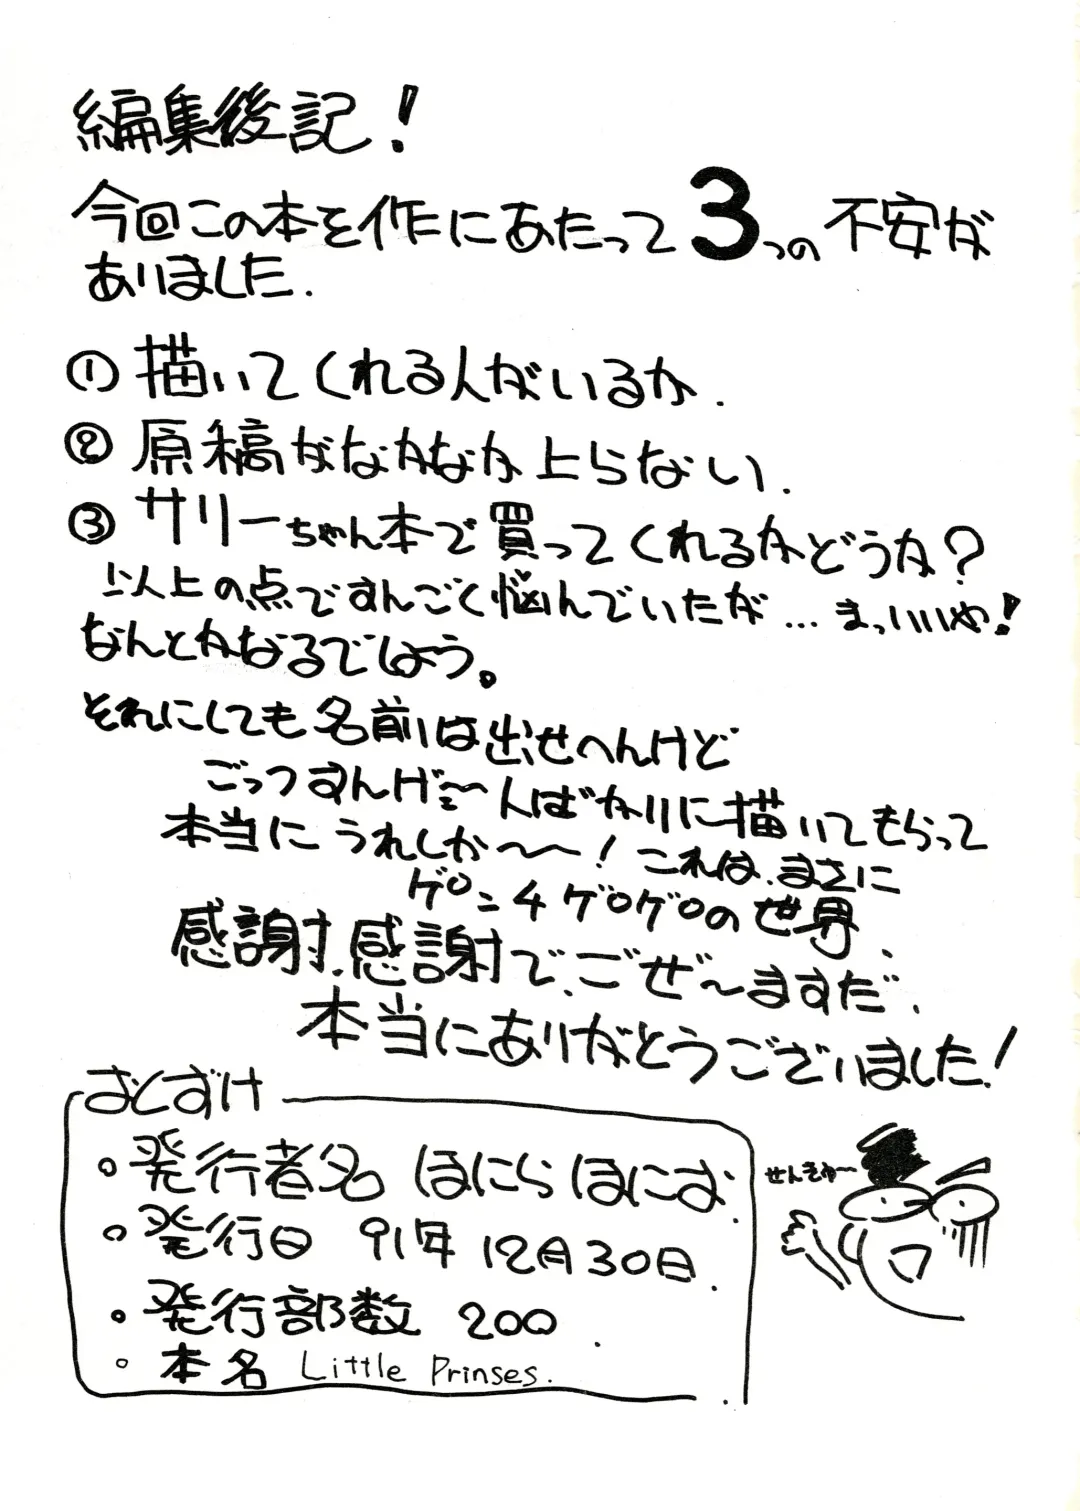 編集後記!
今回この本を作にあたって3つの不安が
ありました.
① 描いてくれる人がいるか.
② 原稿がなかなか上らない.
③ サリーちゃん本で買ってくれるかどうか?
以上の点ですんごく悩んでいたが…まっいいや!
なんとかなるでしょう。
それにしても名前は出せへんけど
ごっつすんげ〜人ばかりに描いてもらって
本当にうれしか〜〜! これは、まさに
ゲロニ4ゲロゲロの世界.
感謝、感謝で、ごぜ〜ますだ.
本当にありがとうございました!
おくずけ
・発行者名 ほにらほにお.
・発行日 91年12月30日.
・発行部数 200.
・本名 Little Prinses.
せんきゅ〜